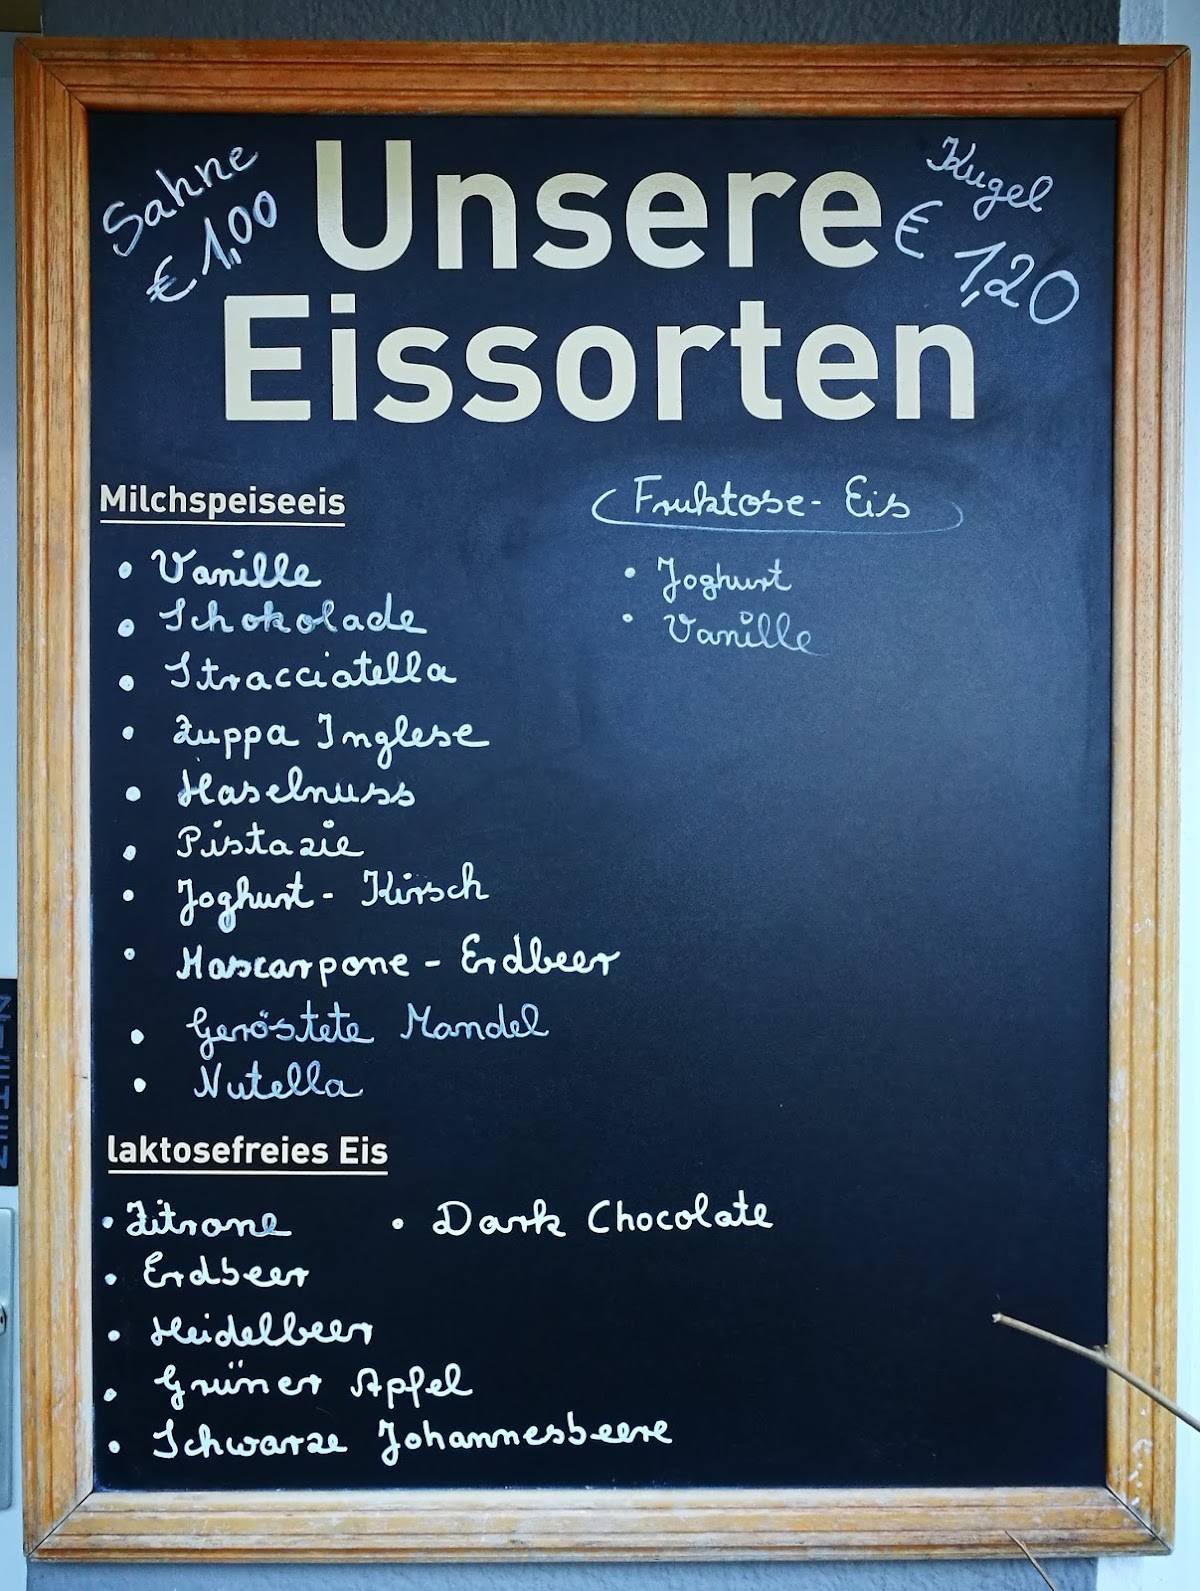 Sahne
€ 1,00
Unsere
Eissorten
Kugel
€ 1,20
Milchspeiseeis
• Vanille
• Schokolade
• Stracciatella
• Zuppa Inglese
• Haselnuss
• Pistazie
• Joghurt - Kirsch
• Mascarpone - Erdbeer
• Geröstete Mandel
• Nutella
Fruktose- Eis
• Joghurt
• Vanille
laktosefreies Eis
• Zitrone • Dark Chocolate
• Erdbeer
• Heidelbeer
• Grüner Apfel
• Schwarze Johannesbeere